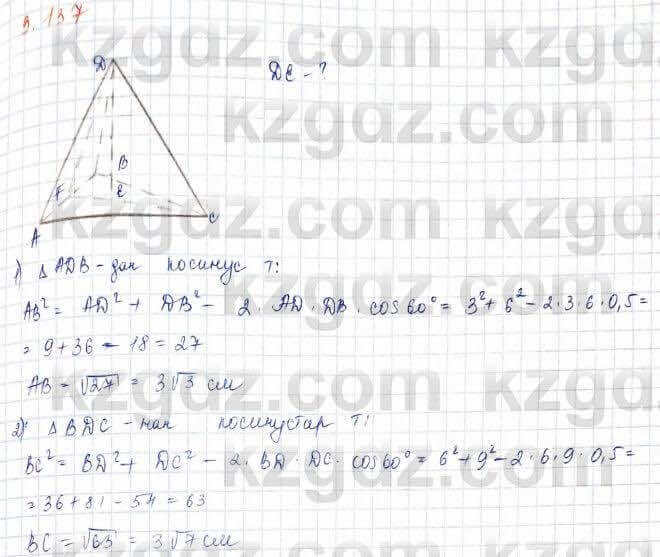 9.137
DE - ?
D
B
F
E
A
C
1) △ADB - дан косинус т:
AB² = AD² + DB² - 2 · AD · DB · cos 60° = 3² + 6² - 2·3·6·0,5 =
= 9 + 36 - 18 = 27
AB = √27 = 3√3 см
2) △BDC - нан косинустар т:
BC² = BD² + DC² - 2 · BD · DC · cos 60° = 6² + 9² - 2·6·9·0,5 =
= 36 + 81 - 54 = 63
BC = √63 = 3√7 см
kzgdz.com
kzgdz.com
kzgdz.com
kzgdz.com
kzgdz.com
kzgdz.com
kzgdz.com